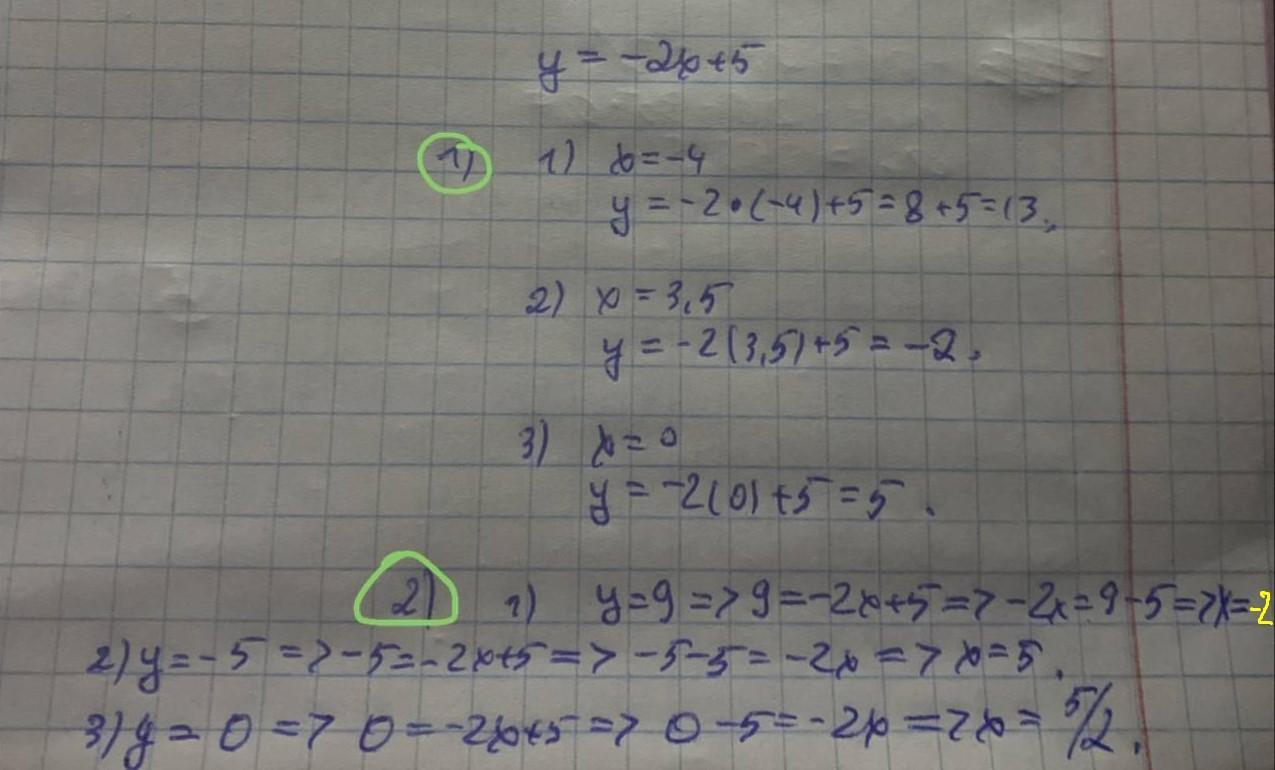 y = -2x+5
1) 1) x=-4
y = -2•(-4)+5=8+5=13,
2) x = 3,5
y = -2(3,5)+5 = -2.
3) x = 0
y = -2(0)+5 = 5.
2) 1) y=9 => 9=-2x+5=> -2x=9-5=>x=-2
2) y=-5 => -5=-2x+5=> -5-5= -2x => x=5.
3) y = 0 => 0=-2x+5=> 0-5=-2x => x= 5/2.